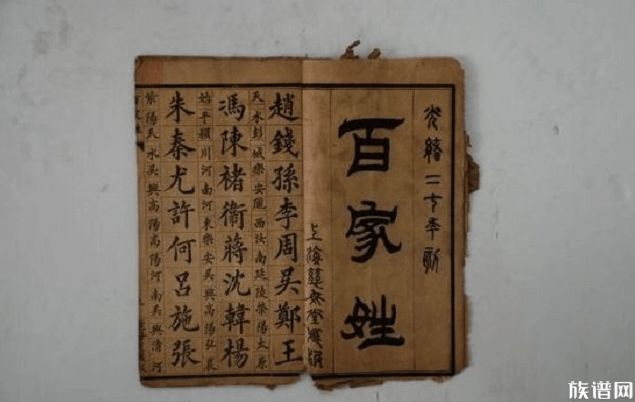 光緒二十年
百家姓
趙錢孫李周吳鄭王
天水彭城樂安隴西汝南延陵滎陽太原
馮陳褚衞蔣沈韓楊
始平潁川河南河東樂安吳興高陽弘農
朱秦尤許何呂施張
紫陽天水吳興高陽高陽河南吳興清河
族谱网